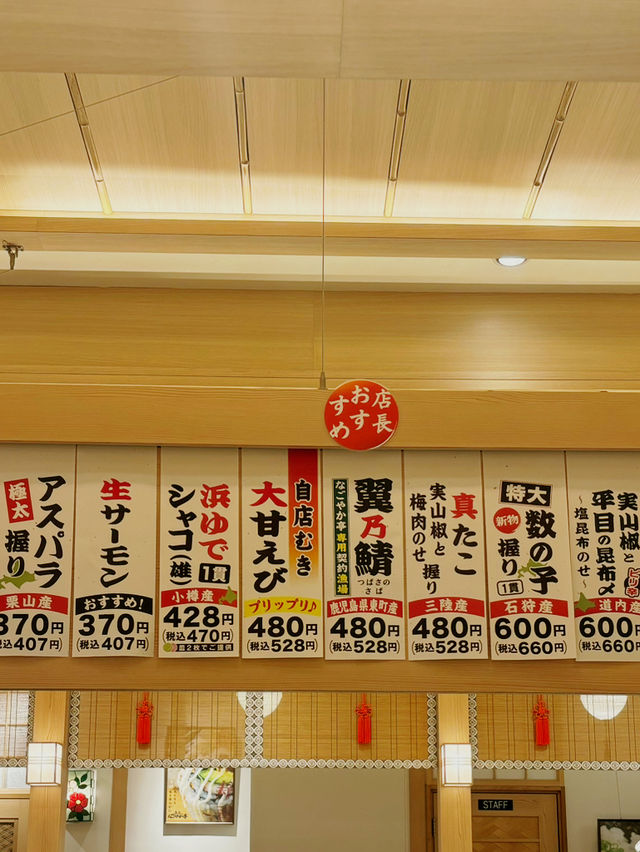 店長
おす
すめ
アスパラ
極太
握り
栗山産
370円
(税込407円)
生サーモン
おすすめ!
370円
(税込407円)
浜ゆで
1貫
シャコ(雄)
小樽産
428円
(税込470円)
皿2枚でご提供
自店むき
大甘えび
プリップリ♪
480円
(税込528円)
翼乃鯖
つばさの
さば
なごやか亭専用契約漁場
鹿児島県東町産
480円
(税込528円)
真たこ
実山椒と
梅肉のせ握り
三陸産
480円
(税込528円)
特大
数の子
新物
握り
1貫
石狩産
600円
(税込660円)
実山椒と
ピリ辛
平目の昆布〆
～塩昆布のせ～
道内産
600円
(税込660円
STAFF